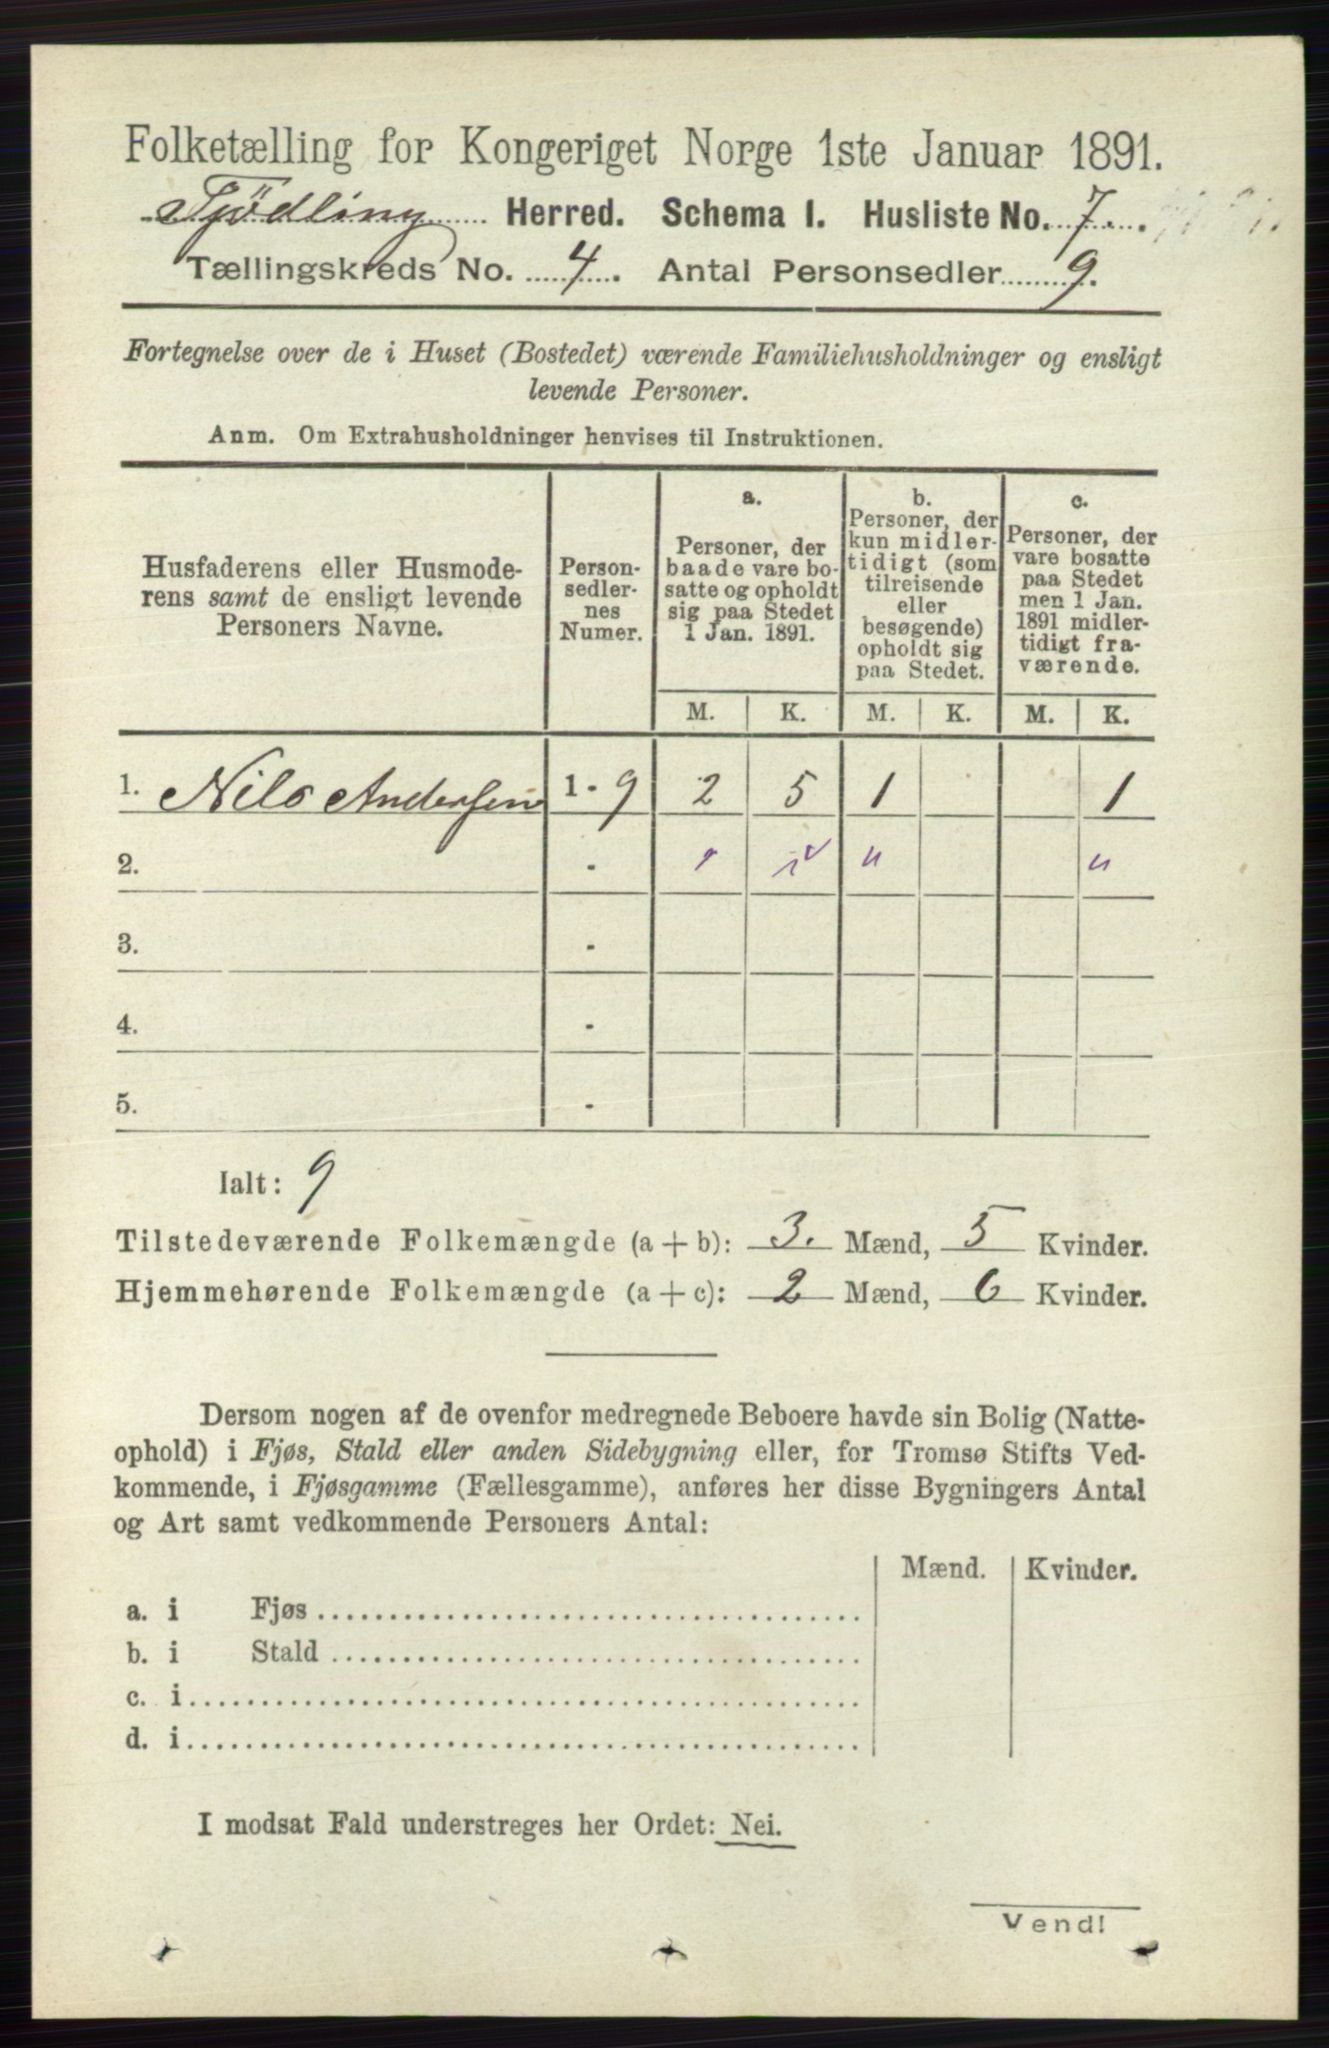 Folketælling for Kongeriget Norge 1ste Januar 1891.
Tjødling Herred. Schema I. Husliste No. 7.
Tællingskreds No. 4. Antal Personsedler 9.
Fortegnelse over de i Huset (Bostedet) værende Familiehusholdninger og ensligt
levende Personer.
Anm. Om Extrahusholdninger henvises til Instruktionen.
Husfaderens eller Husmode-
rens samt de ensligt levende
Personers Navne.
Person-
sedler-
nes
Numer.
a.
Personer, der
baade vare bo-
satte og opholdt
sig paa Stedet
1 Jan. 1891.
b.
Personer, der
kun midler-
tidigt (som
tilreisende
eller
besøgende)
opholdt sig
paa Stedet.
c.
Personer, der
vare bosatte
paa Stedet
men 1 Jan.
1891 midler-
tidigt fra-
værende.
M. K. M. K. M. K.
1. Nils Andersen 1 - 9 2 5 1 1
2. -
3. -
4. -
5. -
Ialt: 9
Tilstedeværende Folkemængde (a + b): 3. Mænd, 5 Kvinder.
Hjemmehørende Folkemængde (a + c): 2 Mænd, 6 Kvinder.
Dersom nogen af de ovenfor medregnede Beboere havde sin Bolig (Natte-
ophold) i Fjøs, Stald eller anden Sidebygning eller, for Tromsø Stifts Ved-
kommende, i Fjøsgamme (Fællesgamme), anføres her disse Bygningers Antal
og Art samt vedkommende Personers Antal:
Mænd. Kvinder.
a. i Fjøs
b. i Stald
c. i
d. i
I modsat Fald understreges her Ordet: Nei.
Vend!